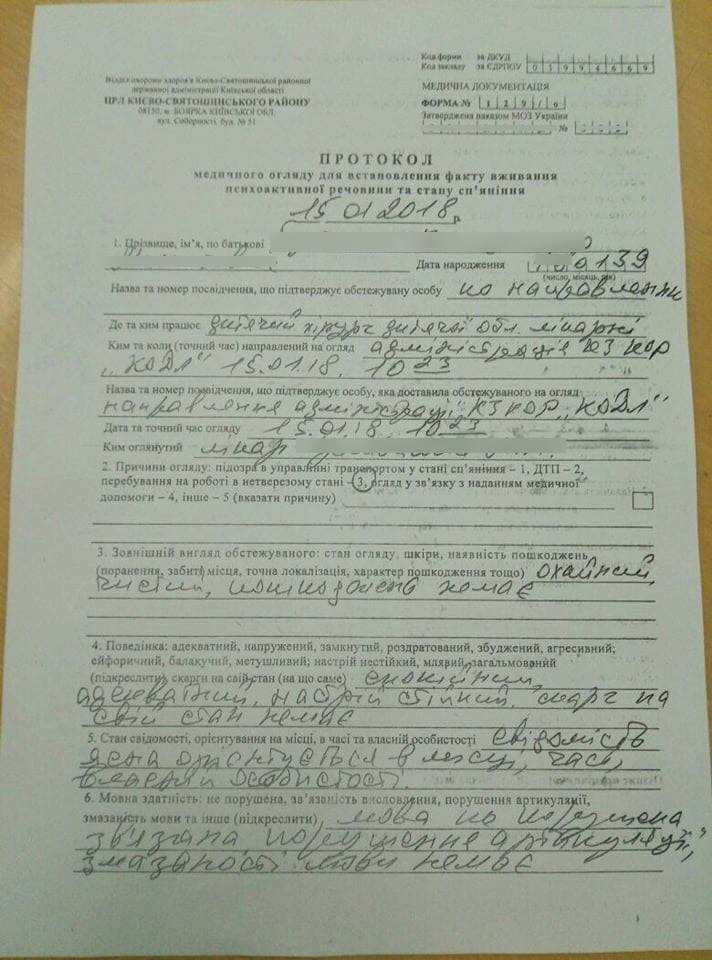 Код форми за ДКУД
Код закладу за ЄДРПОУ 0 3 9 9 4 6 6 9
Відділ охорони здоров'я Києво-Святошинської районної
державної адміністрації Київської області
ЦРЛ КИЄВО-СВЯТОШИНСЬКОГО РАЙОНУ
08150, м. БОЯРКА КИЇВСЬКОЇ ОБЛ.
вул. Соборності, буд. № 51
МЕДИЧНА ДОКУМЕНТАЦІЯ
ФОРМА № 1 2 9 / о
Затверджена наказом МОЗ України
№
ПРОТОКОЛ
медичного огляду для встановлення факту вживання
психоактивної речовини та стану сп'яніння
15 01 2018 р.
1. Прізвище, ім'я, по батькові
Дата народження 139
(число, місяць, рік)
Назва та номер посвідчення, що підтверджує обстежувану особу по направленню
Де та ким працює дитячий хірург дитячої обл. лікарні
Ким та коли (точний час) направлений на огляд адміністрація КЗ КОР
„КОДЛ" 15.01.18. 10 23
Назва та номер посвідчення, що підтверджує особу, яка доставила обстежуваного на огляд
направлення адміністрації КЗ КОР „КОДЛ"
Дата та точний час огляду 15.01.18. 10 23
Ким оглянутий лікар
2. Причини огляду: підозра в управлінні транспортом у стані сп'яніння – 1, ДТП – 2,
перебування на роботі в нетверезому стані – 3, огляд у зв'язку з наданням медичної
допомоги – 4, інше – 5 (вказати причину)
3. Зовнішній вигляд обстежуваного: стан огляду, шкіри, наявність пошкоджень
(поранення, забиті місця, точна локалізація, характер пошкодження тощо) охайний,
чистий, пошкоджень немає
4. Поведінка: адекватний, напружений, замкнутий, роздратований, збуджений, агресивний;
ейфоричний, балакучий, метушливий; настрій нестійкий, млявий, загальмований
(підкреслити) скарги на свій стан (на що саме) спокійний,
адекватний, настрій стійкий. скарг на
свій стан немає
5. Стан свідомості, орієнтування на місці, в часі та власній особистості свідомість
ясна орієнтується в місці, часі,
власній особистості.
6. Мовна здатність: не порушена, зв'язаність висловлення, порушення артикуляції,
змазаність мови та інше (підкреслити) мова не порушена
зв'язана порушення артикуляції,
змазаності мови немає